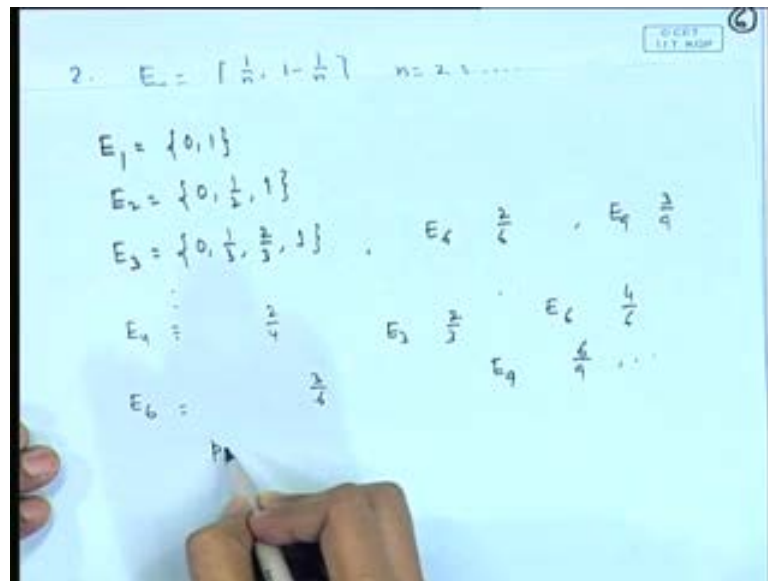 6
I.I.T. KGP
2. E = [ 1/n, 1 - 1/n ] n = 2 3 ....
E₁ = {0, 1}
E₂ = {0, 1/2, 1}
E₃ = {0, 1/3, 2/3, 1} , E₆ 2/6 , E₉ 3/9
:
E₄ = 2/4 E₃ 2/3 E₆ 4/6
E₉ 6/9 ...
E₆ = 3/6